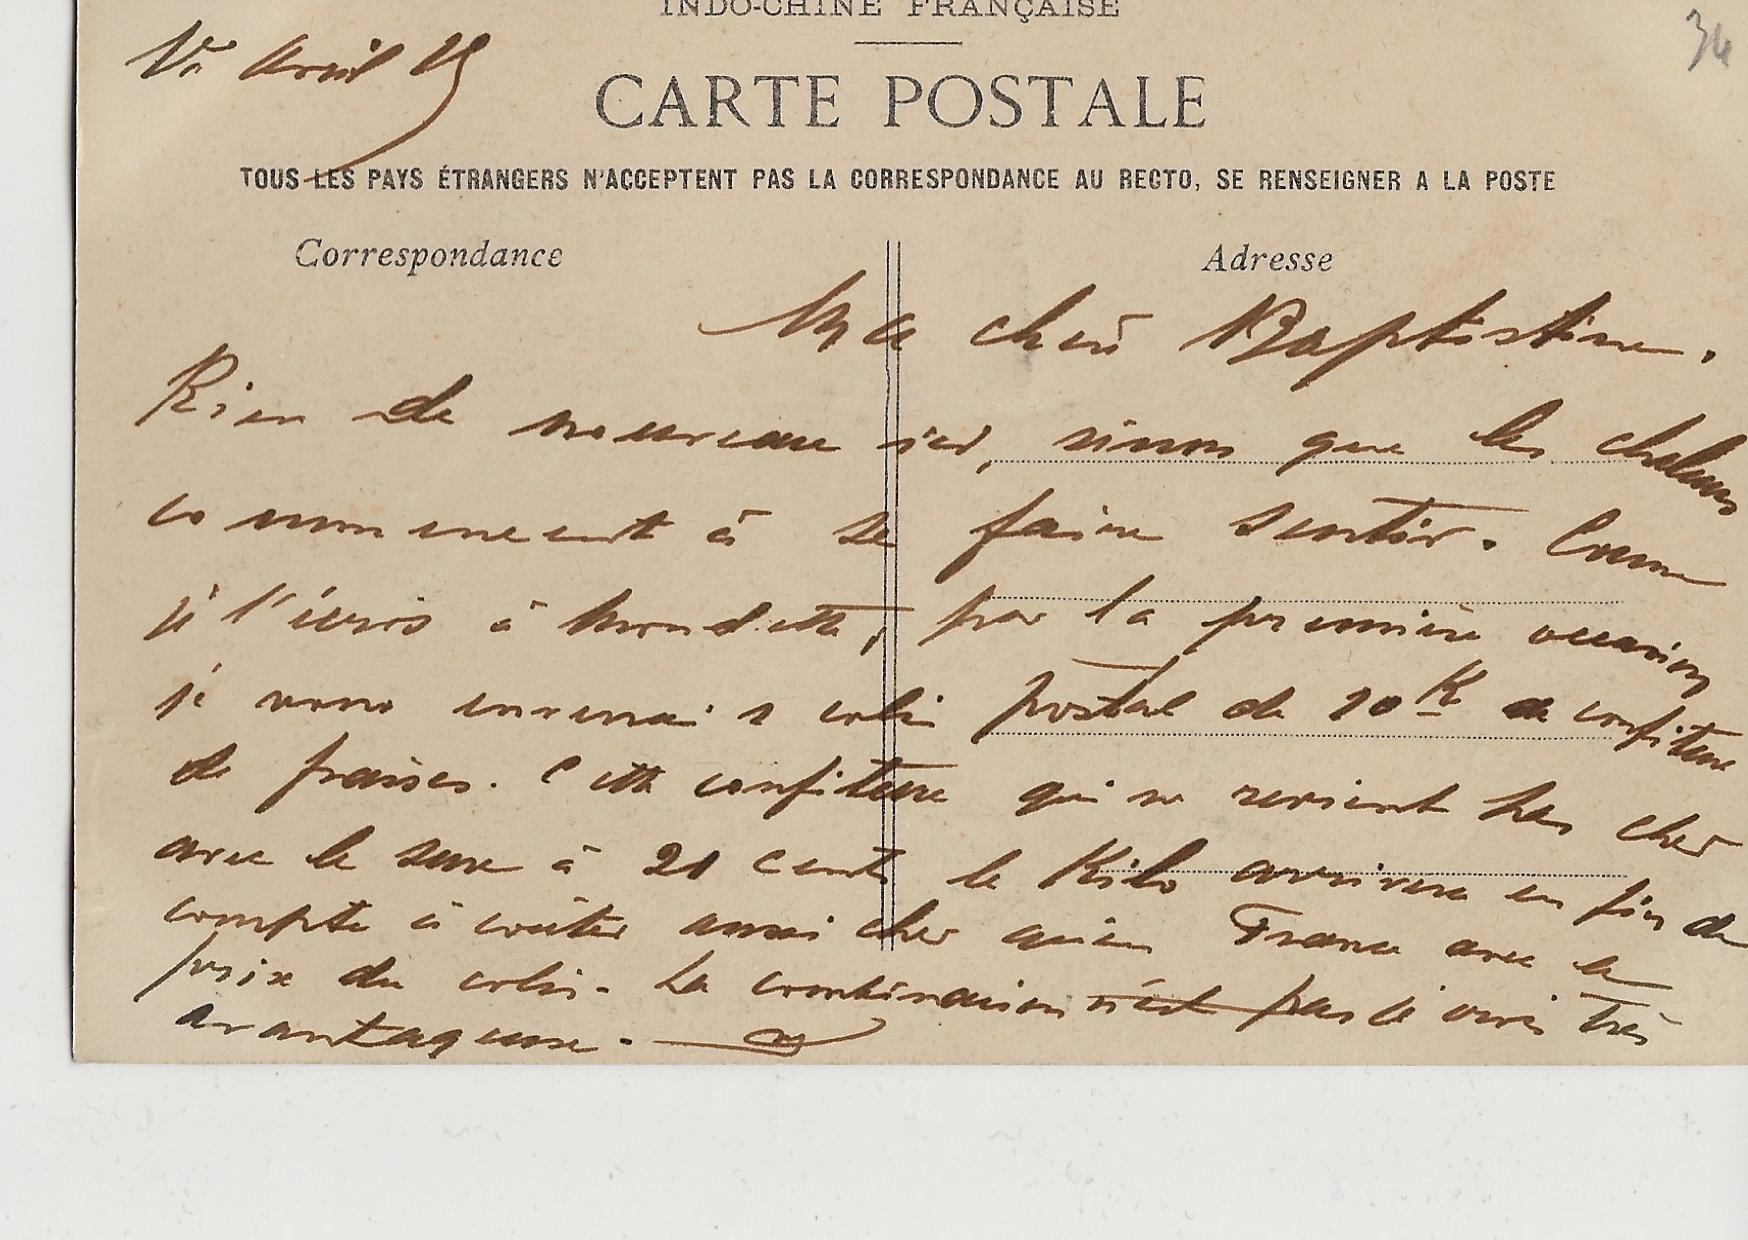 INDO-CHINE FRANÇAISE
34
avril
CARTE POSTALE
TOUS LES PAYS ÉTRANGERS N'ACCEPTENT PAS LA CORRESPONDANCE AU RECTO, SE RENSEIGNER A LA POSTE
Correspondance
Adresse
Ma chère Baptistine.
Rien de nouveau ici, sinon que les chaleurs
commencent à se faire sentir. Comme
je l'écris à , par la première occasion
je vous enverrai 1 colis postal de 10 K de confiture
de fraises. Cette confiture qui ne revient pas cher
avec le sucre à 20 cents le Kilo arrivera en fin de
compte à coûter aussi cher qu'en France avec le
prix du colis. La combinaison n'est pas très
avantageuse.